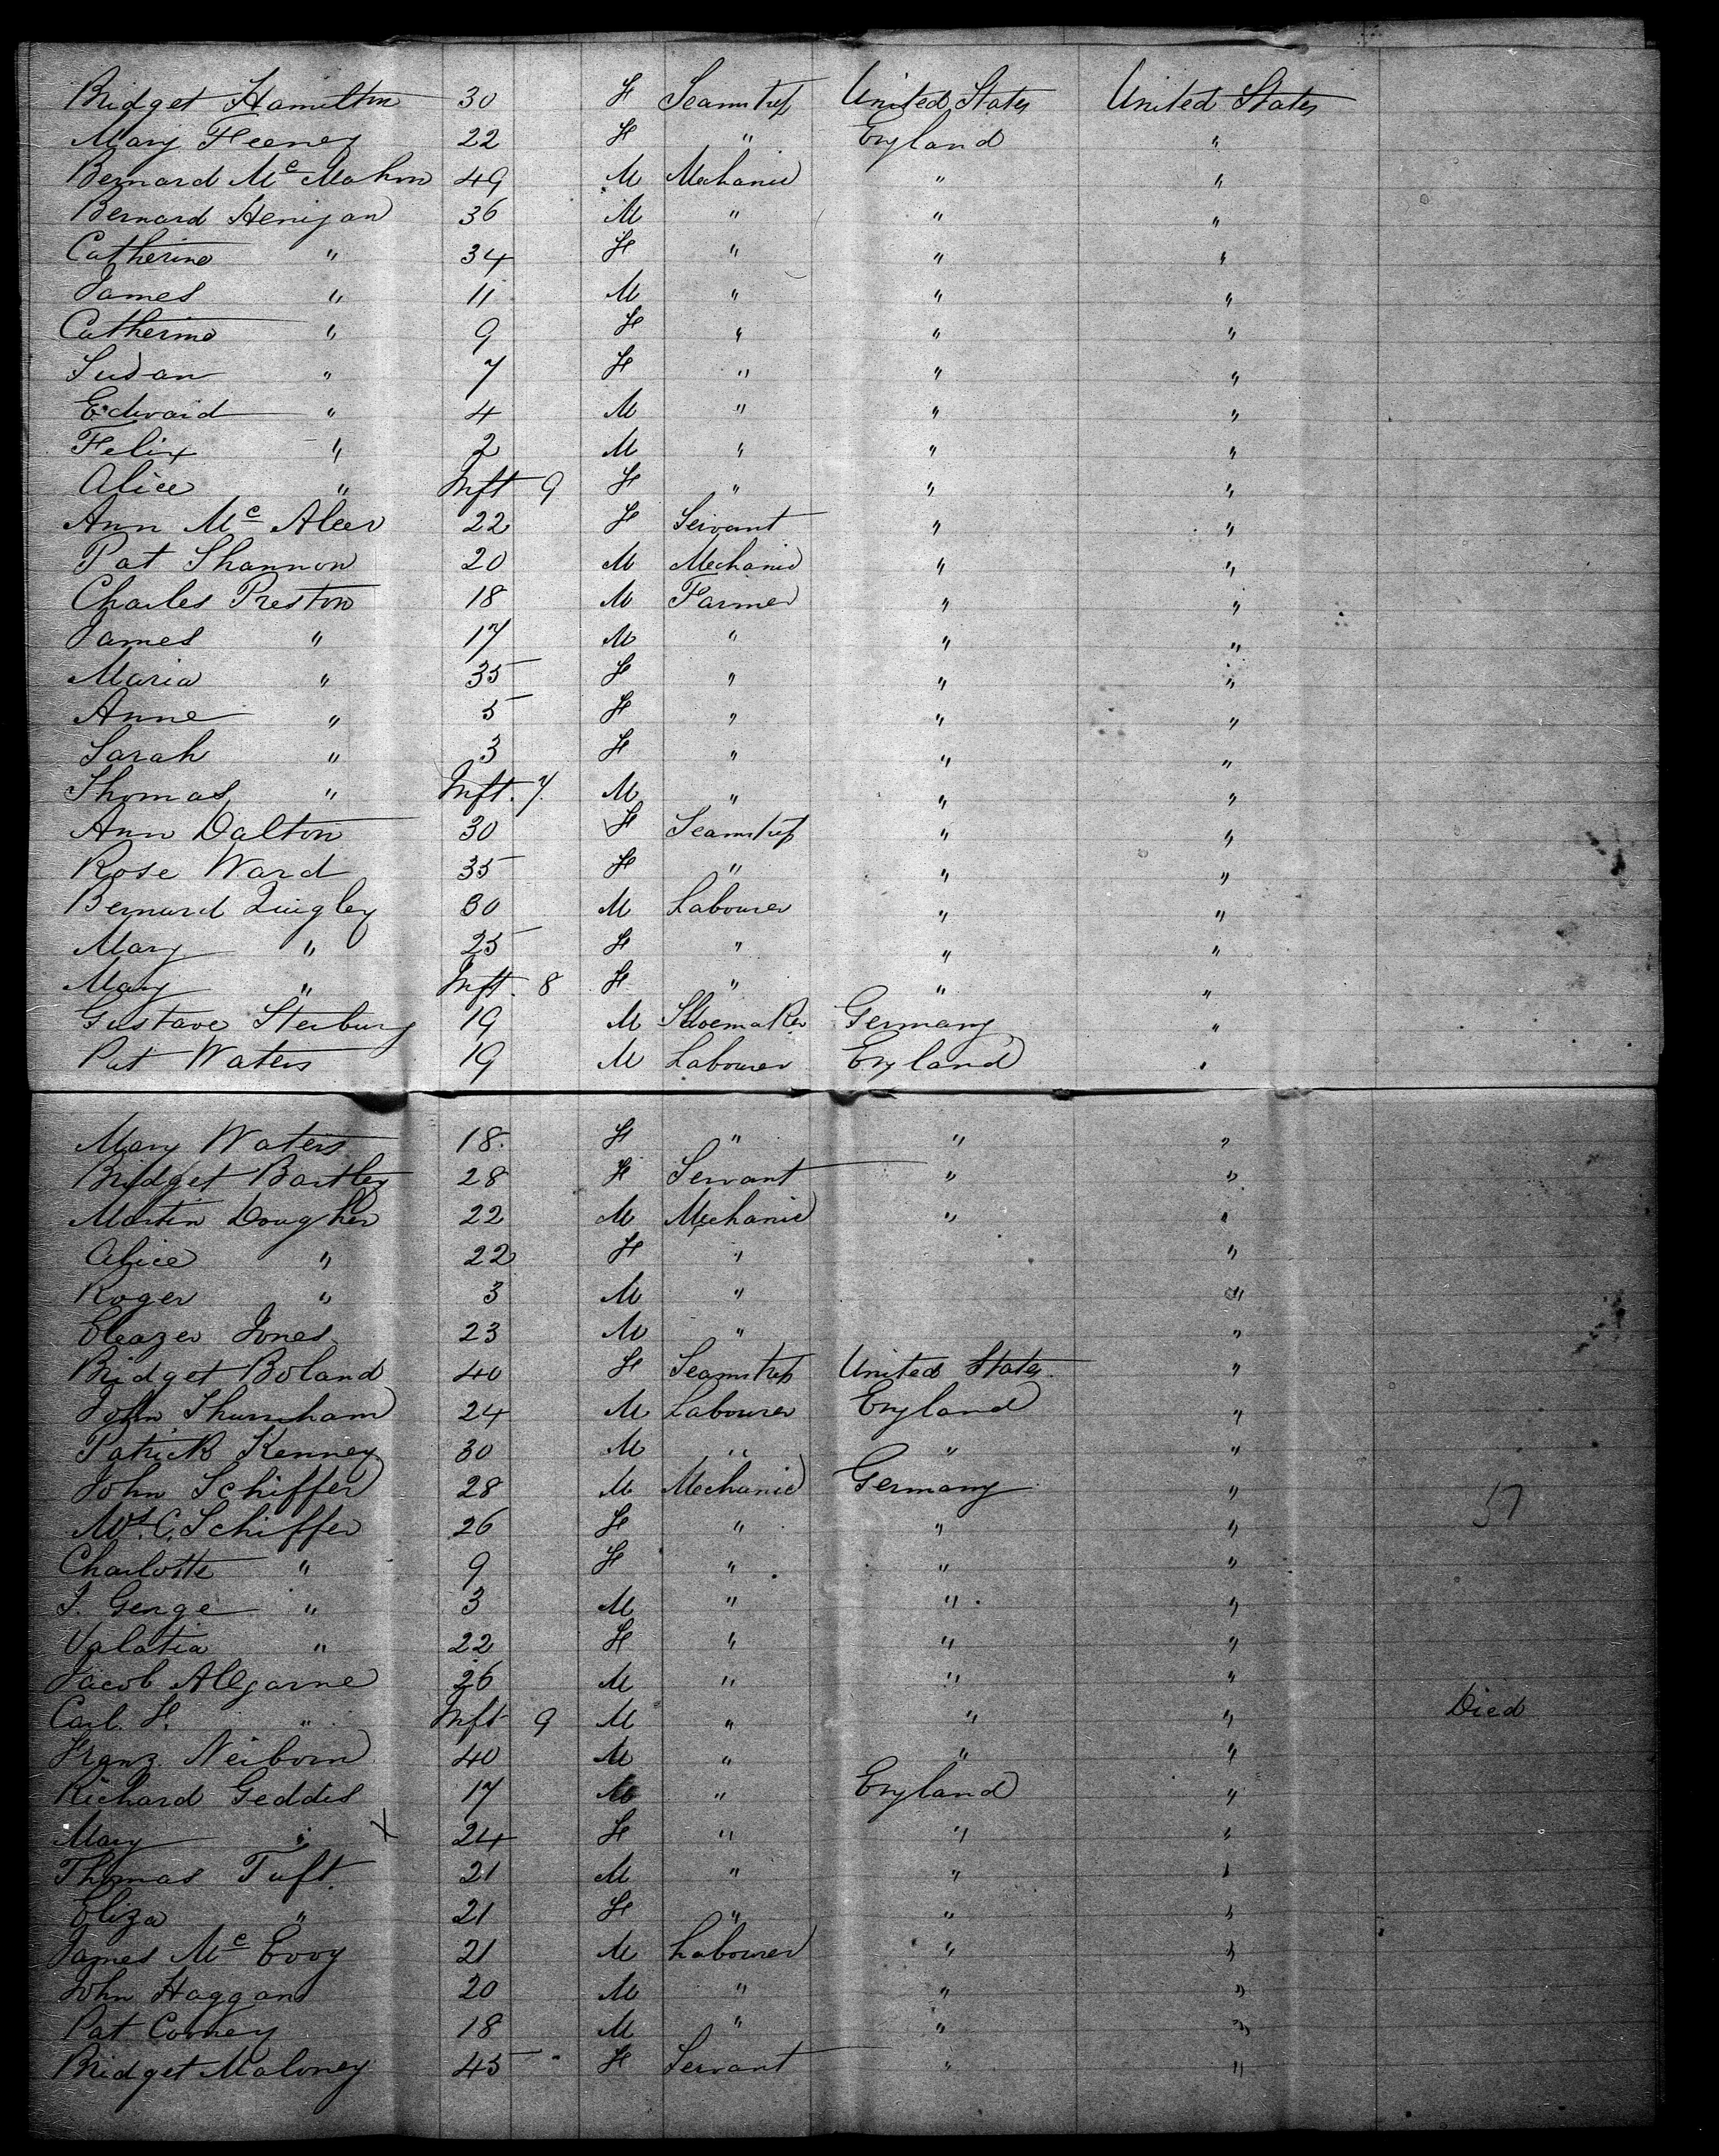 Bridget Hamilton 30 F Seamstress United States United States
Mary Feeney 22 F " England "
Bernard Mc Mahon 49 M Mechanic " "
Bernard Henigan 36 M " " "
Catherine " 34 F " " "
James " 11 M " " "
Catherine " 9 F " " "
Susan " 7 F " " "
Edward " 4 M " " "
Felix " 2 M " " "
Alice " Inft 9 F " " "
Ann Mc Aleer 22 F Servant " "
Pat Shannon 20 M Mechanic " "
Charles Preston 18 M Farmer " "
James " 17 M " " "
Maria " 35 F " " "
Anne " 5 F " " "
Sarah " 3 F " " "
Thomas " Inft. 7. M " " "
Ann Dalton 30 F Seamstress " "
Rose Ward 35 F " " "
Bernard Quigley 30 M Labourer " "
Mary " 25 F " " "
Mary " Inft. 8 F " " "
Gustave Sterburg 19 M Shoemaker Germany "
Pat Waters 19 M Labourer England "
Mary Waters 18. F " " "
Bridget Bartley 28 F Servant " "
Martin Dougher 22 M Mechanic " "
Alice " 22 F " "
Roger " 3 M " "
Eleazer Jones 23 M " "
Bridget Boland 40 F Seamstress United States "
John Thurnham 24 M Labourer England "
Patrick Kenney 30 M " " "
John Schiffer 28 M Mechanic Germany " 57
Mrs. C. Schiffer 26 F " " "
Charlotte " 9 F " " "
J. George " 3 M " " "
Valatia " 22 F " " "
Jacob Allgarne 26 M " " "
Carl. F. " Inft 9 M " " " Died
Franz. Neiborn 40 M " " "
Richard Geddis 17 M " England "
Mary " X 24 F " " "
Thomas Tuft. 21 M " " "
Eliza " 21 F " " "
James Mc Evoy 21 M Labourer " "
John Haggans 20 M " " "
Pat Cooney 18 M " " "
Bridget Maloney 45 F Servant " "